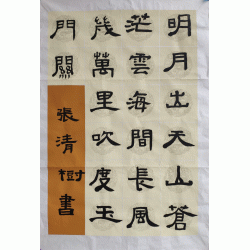 明月出天山蒼
茫雲海間長風
幾萬里吹度玉
門關
張清樹書